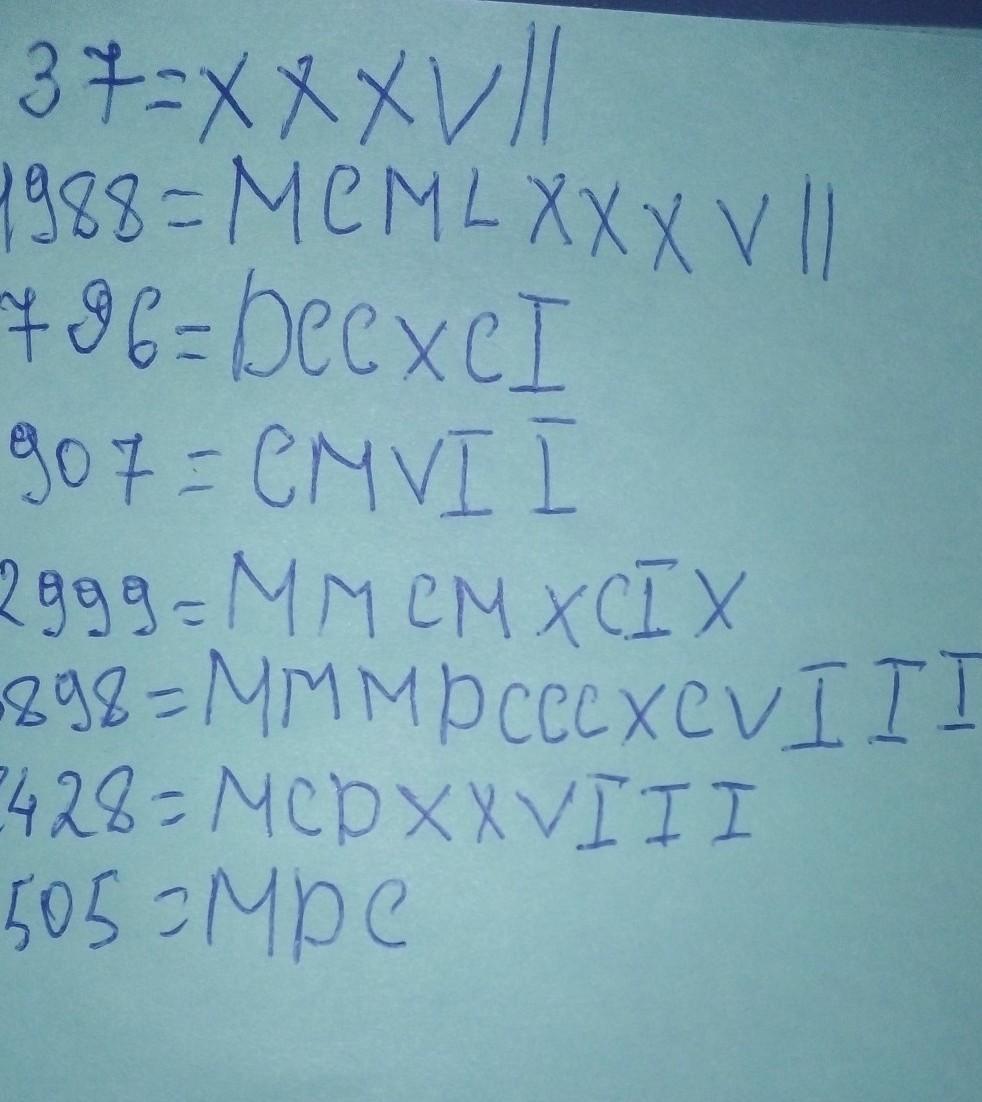 37=XXXVII
1988=MCMLXXXVII
796=DCCXCI
907=CMVII
2999=MMCMXCIX
898=MMMDCCCXCVIII
428=MCDXXVIII
505=MDC